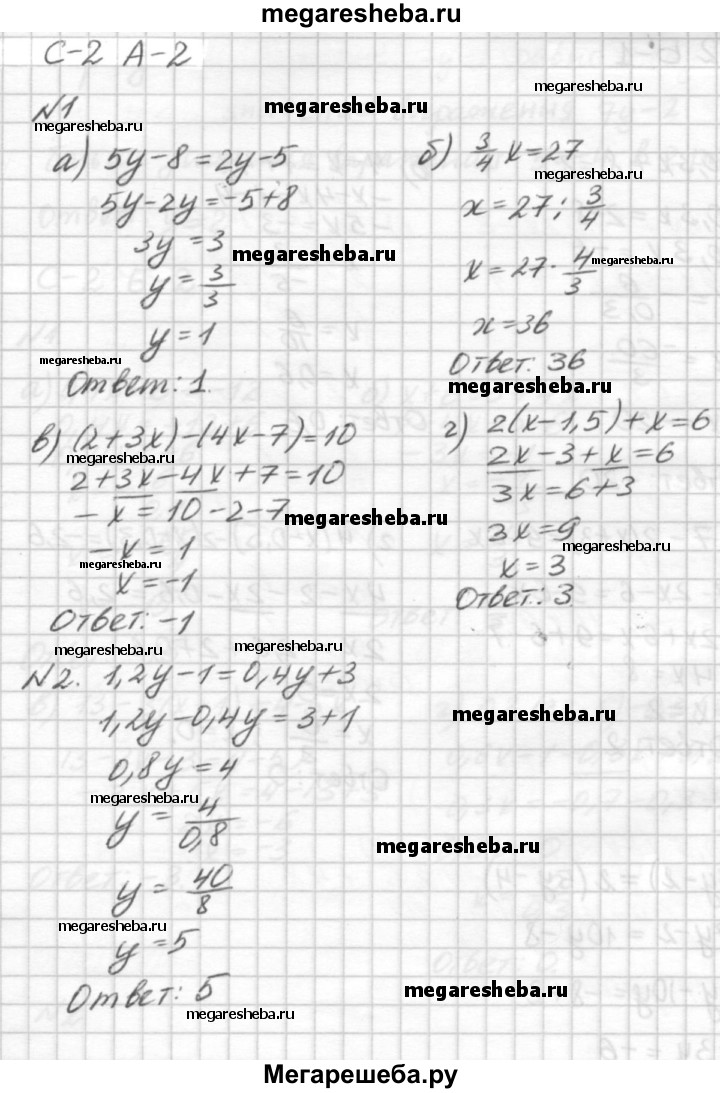 megaresheba.ru
С-2 А-2
№1
megaresheba.ru
megaresheba.ru
megaresheba.ru
а) 5y-8=2y-5
5y-2y=-5+8
3y=3
y=3/3
y=1
Ответ: 1.
megaresheba.ru
megaresheba.ru
б) 3/4 x=27
megaresheba.ru
x=27:3/4
x=27·4/3
megaresheba.ru
x=36
Ответ: 36
megaresheba.ru
в) (2+3x)-(4x-7)=10
megaresheba.ru
2+3x-4x+7=10
-x=10-2-7
megaresheba.ru
-x=1
megaresheba.ru
x=-1
Ответ: -1
г) 2(x-1,5)+x=6
2x-3+x=6
3x=6+3
3x=9
megaresheba.ru
x=3
Ответ: 3
megaresheba.ru
megaresheba.ru
№2. 1,2y-1=0,4y+3
1,2y-0,4y=3+1
megaresheba.ru
0,8y=4
megaresheba.ru
y=4/0,8
megaresheba.ru
y=40/8
megaresheba.ru
y=5
Ответ: 5
megaresheba.ru
megaresheba.ru
Мегарешеба.ру